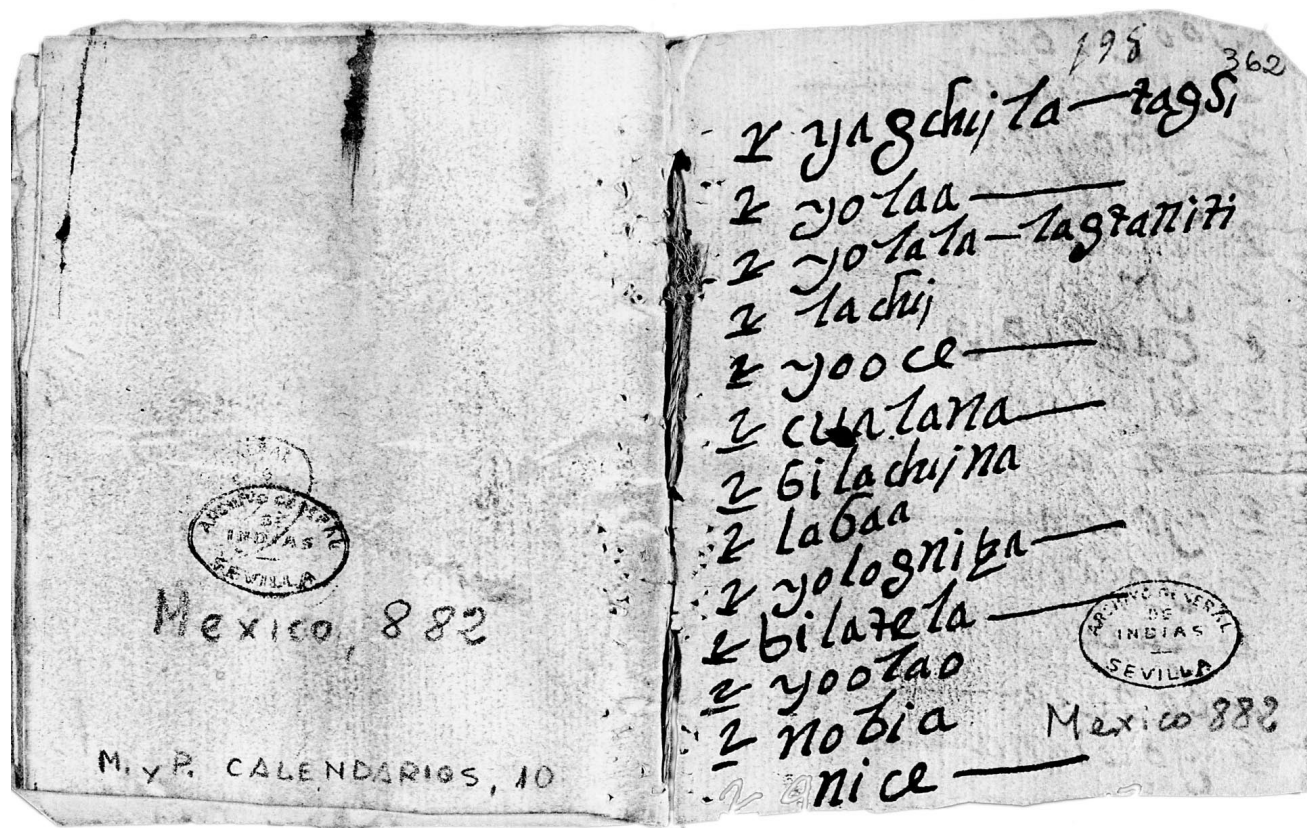 ARCHIVO GENERAL
DE
INDIAS
SEVILLA
Mexico, 882
M. y P. CALENDARIOS, 10
195
362
2 yagchij la — tagsi
2 yolaa —
2 yolala — lagtaniti
2 lachij
2 yooce —
2 cualana —
2 bilachijna
2 labaa
2 yologniza —
2 bilatela —
2 yoolao
2 nobia
nice —
ARCHIVO GENERAL
DE
INDIAS
SEVILLA
Mexico 882